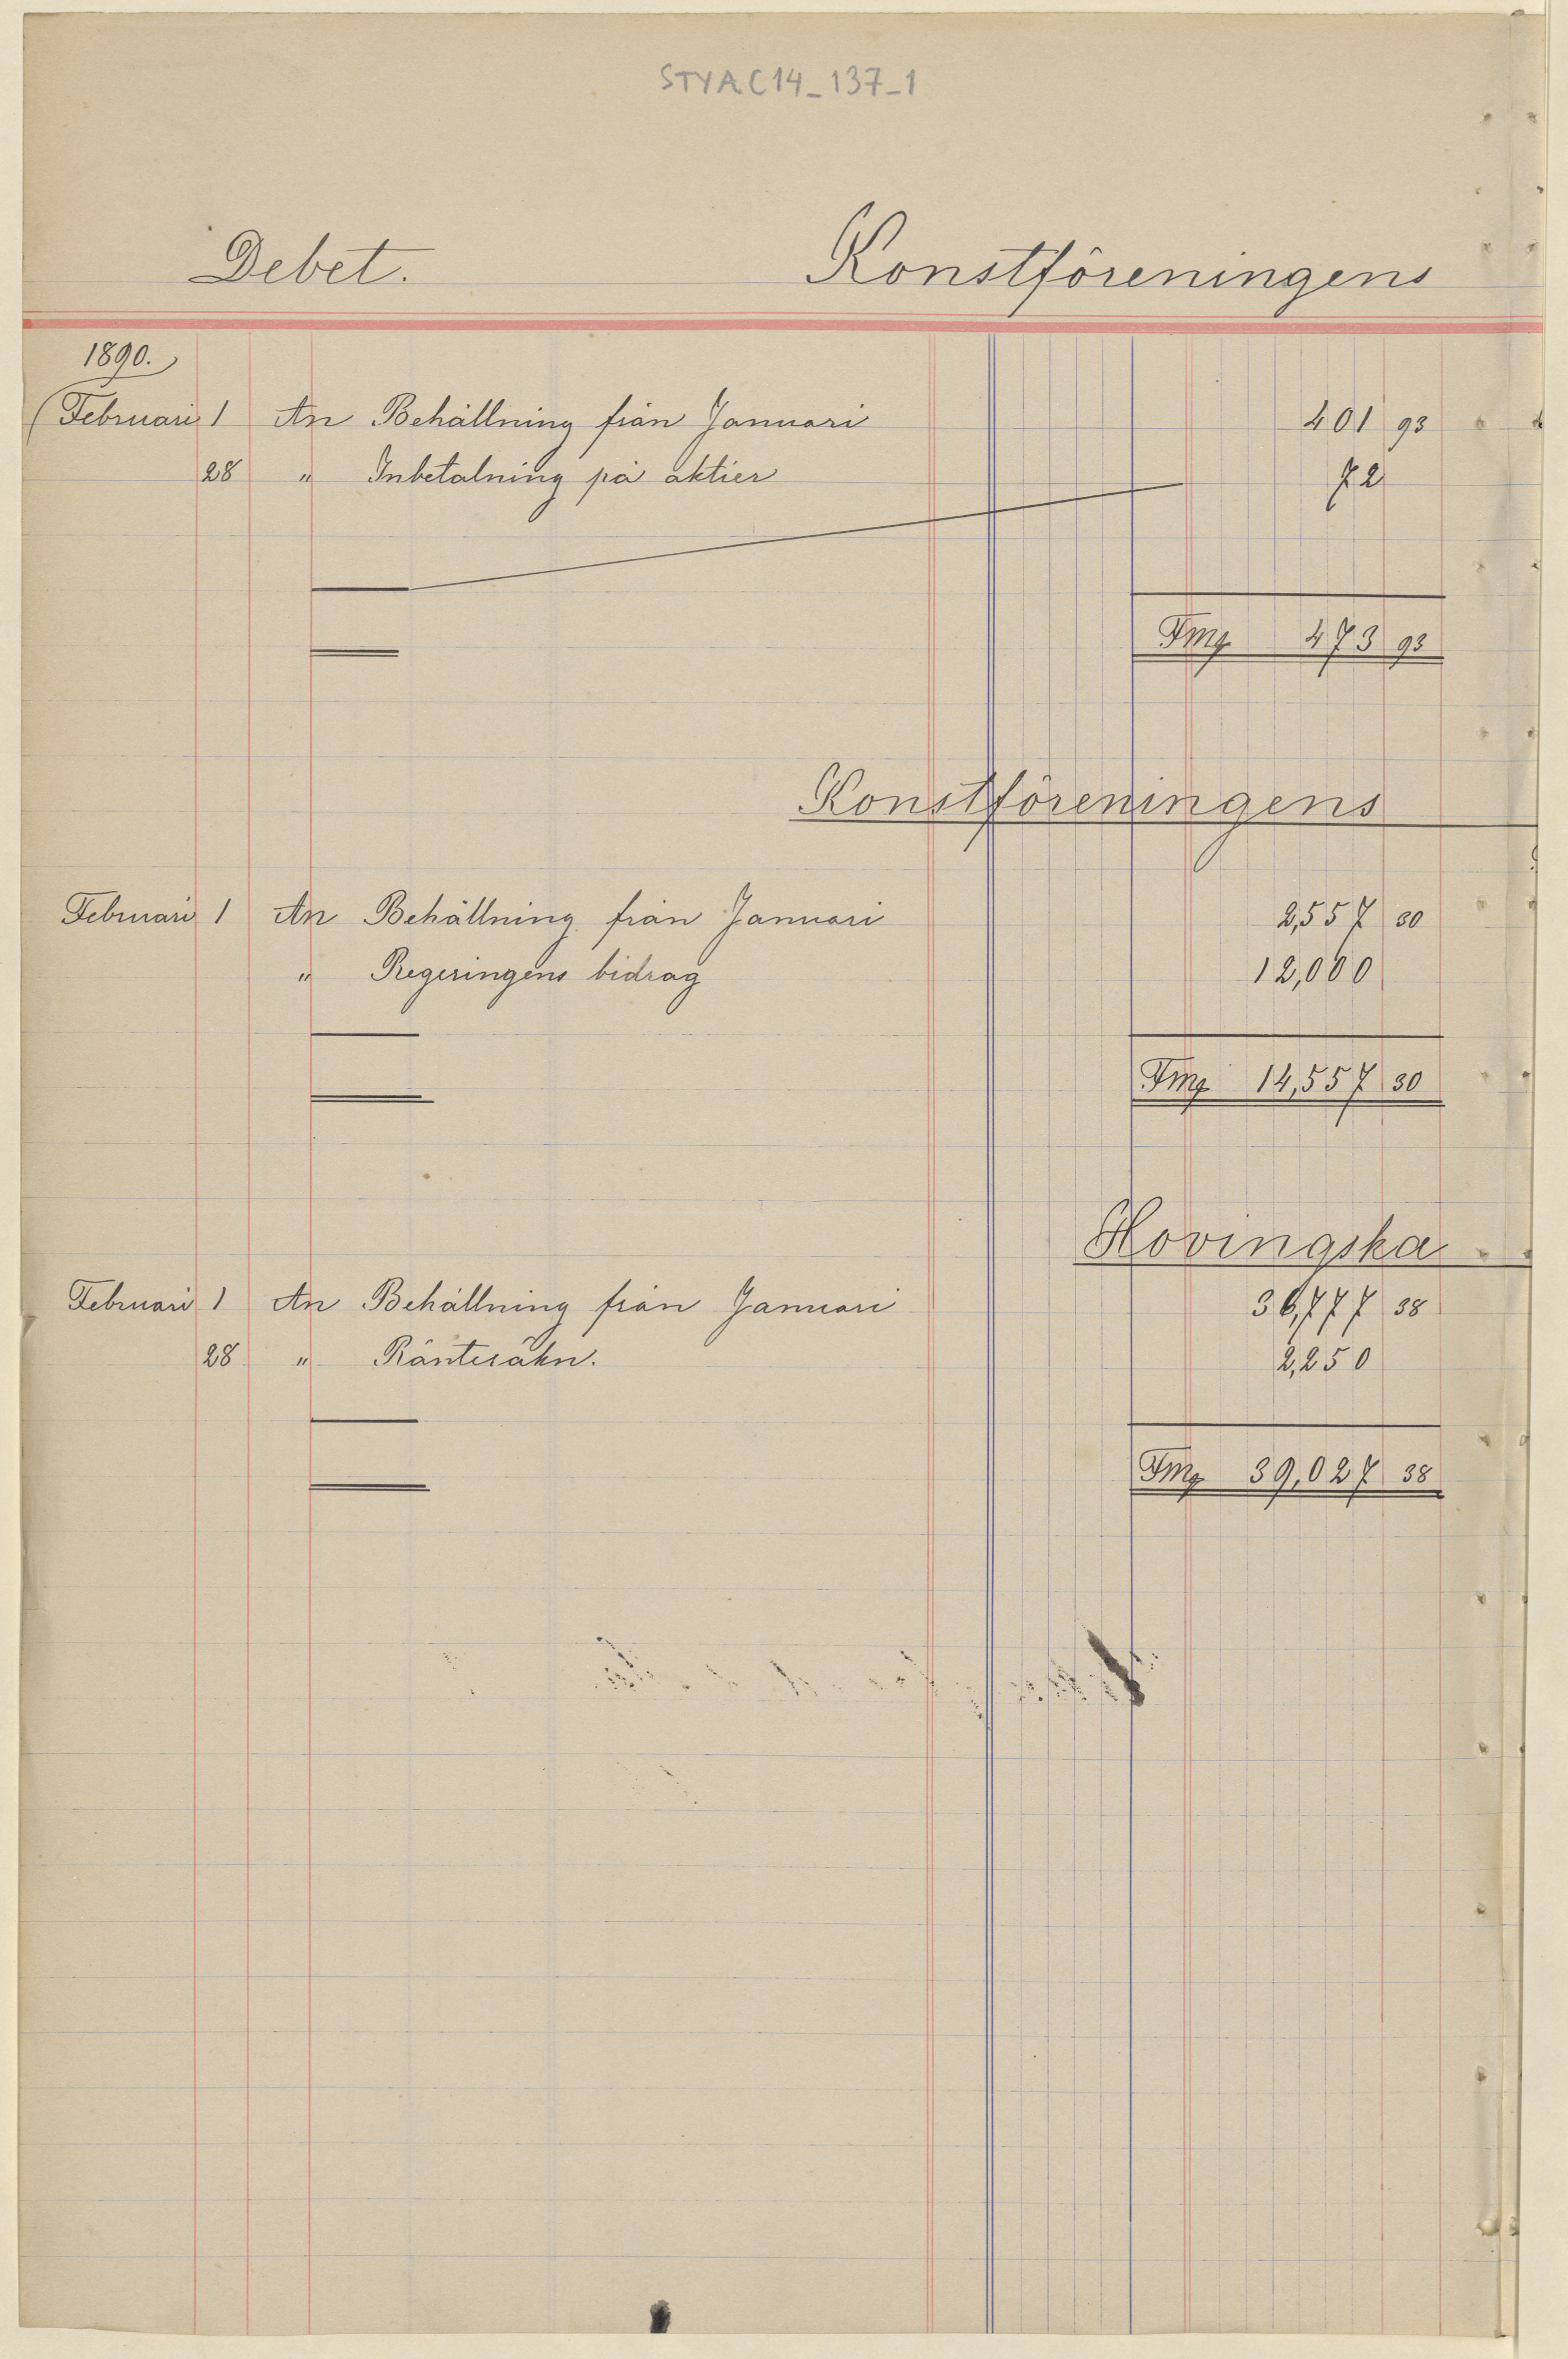 STYAC14_137_1
Debet. Konstföreningens
1890.
Februari 1 An Behållning från Januari 401 93
28 " Inbetalning på aktier 72
Fmg 473 93
Konstföreningens
Februari 1 An Behållning från Januari 2,557 30
" Regeringens bidrag 12,000
Fmg 14,557 30
Hovingska
Februari 1 An Behållning från Januari 36,777 38
28 " Ränteräkn. 2,250
Fmg 39,027 38